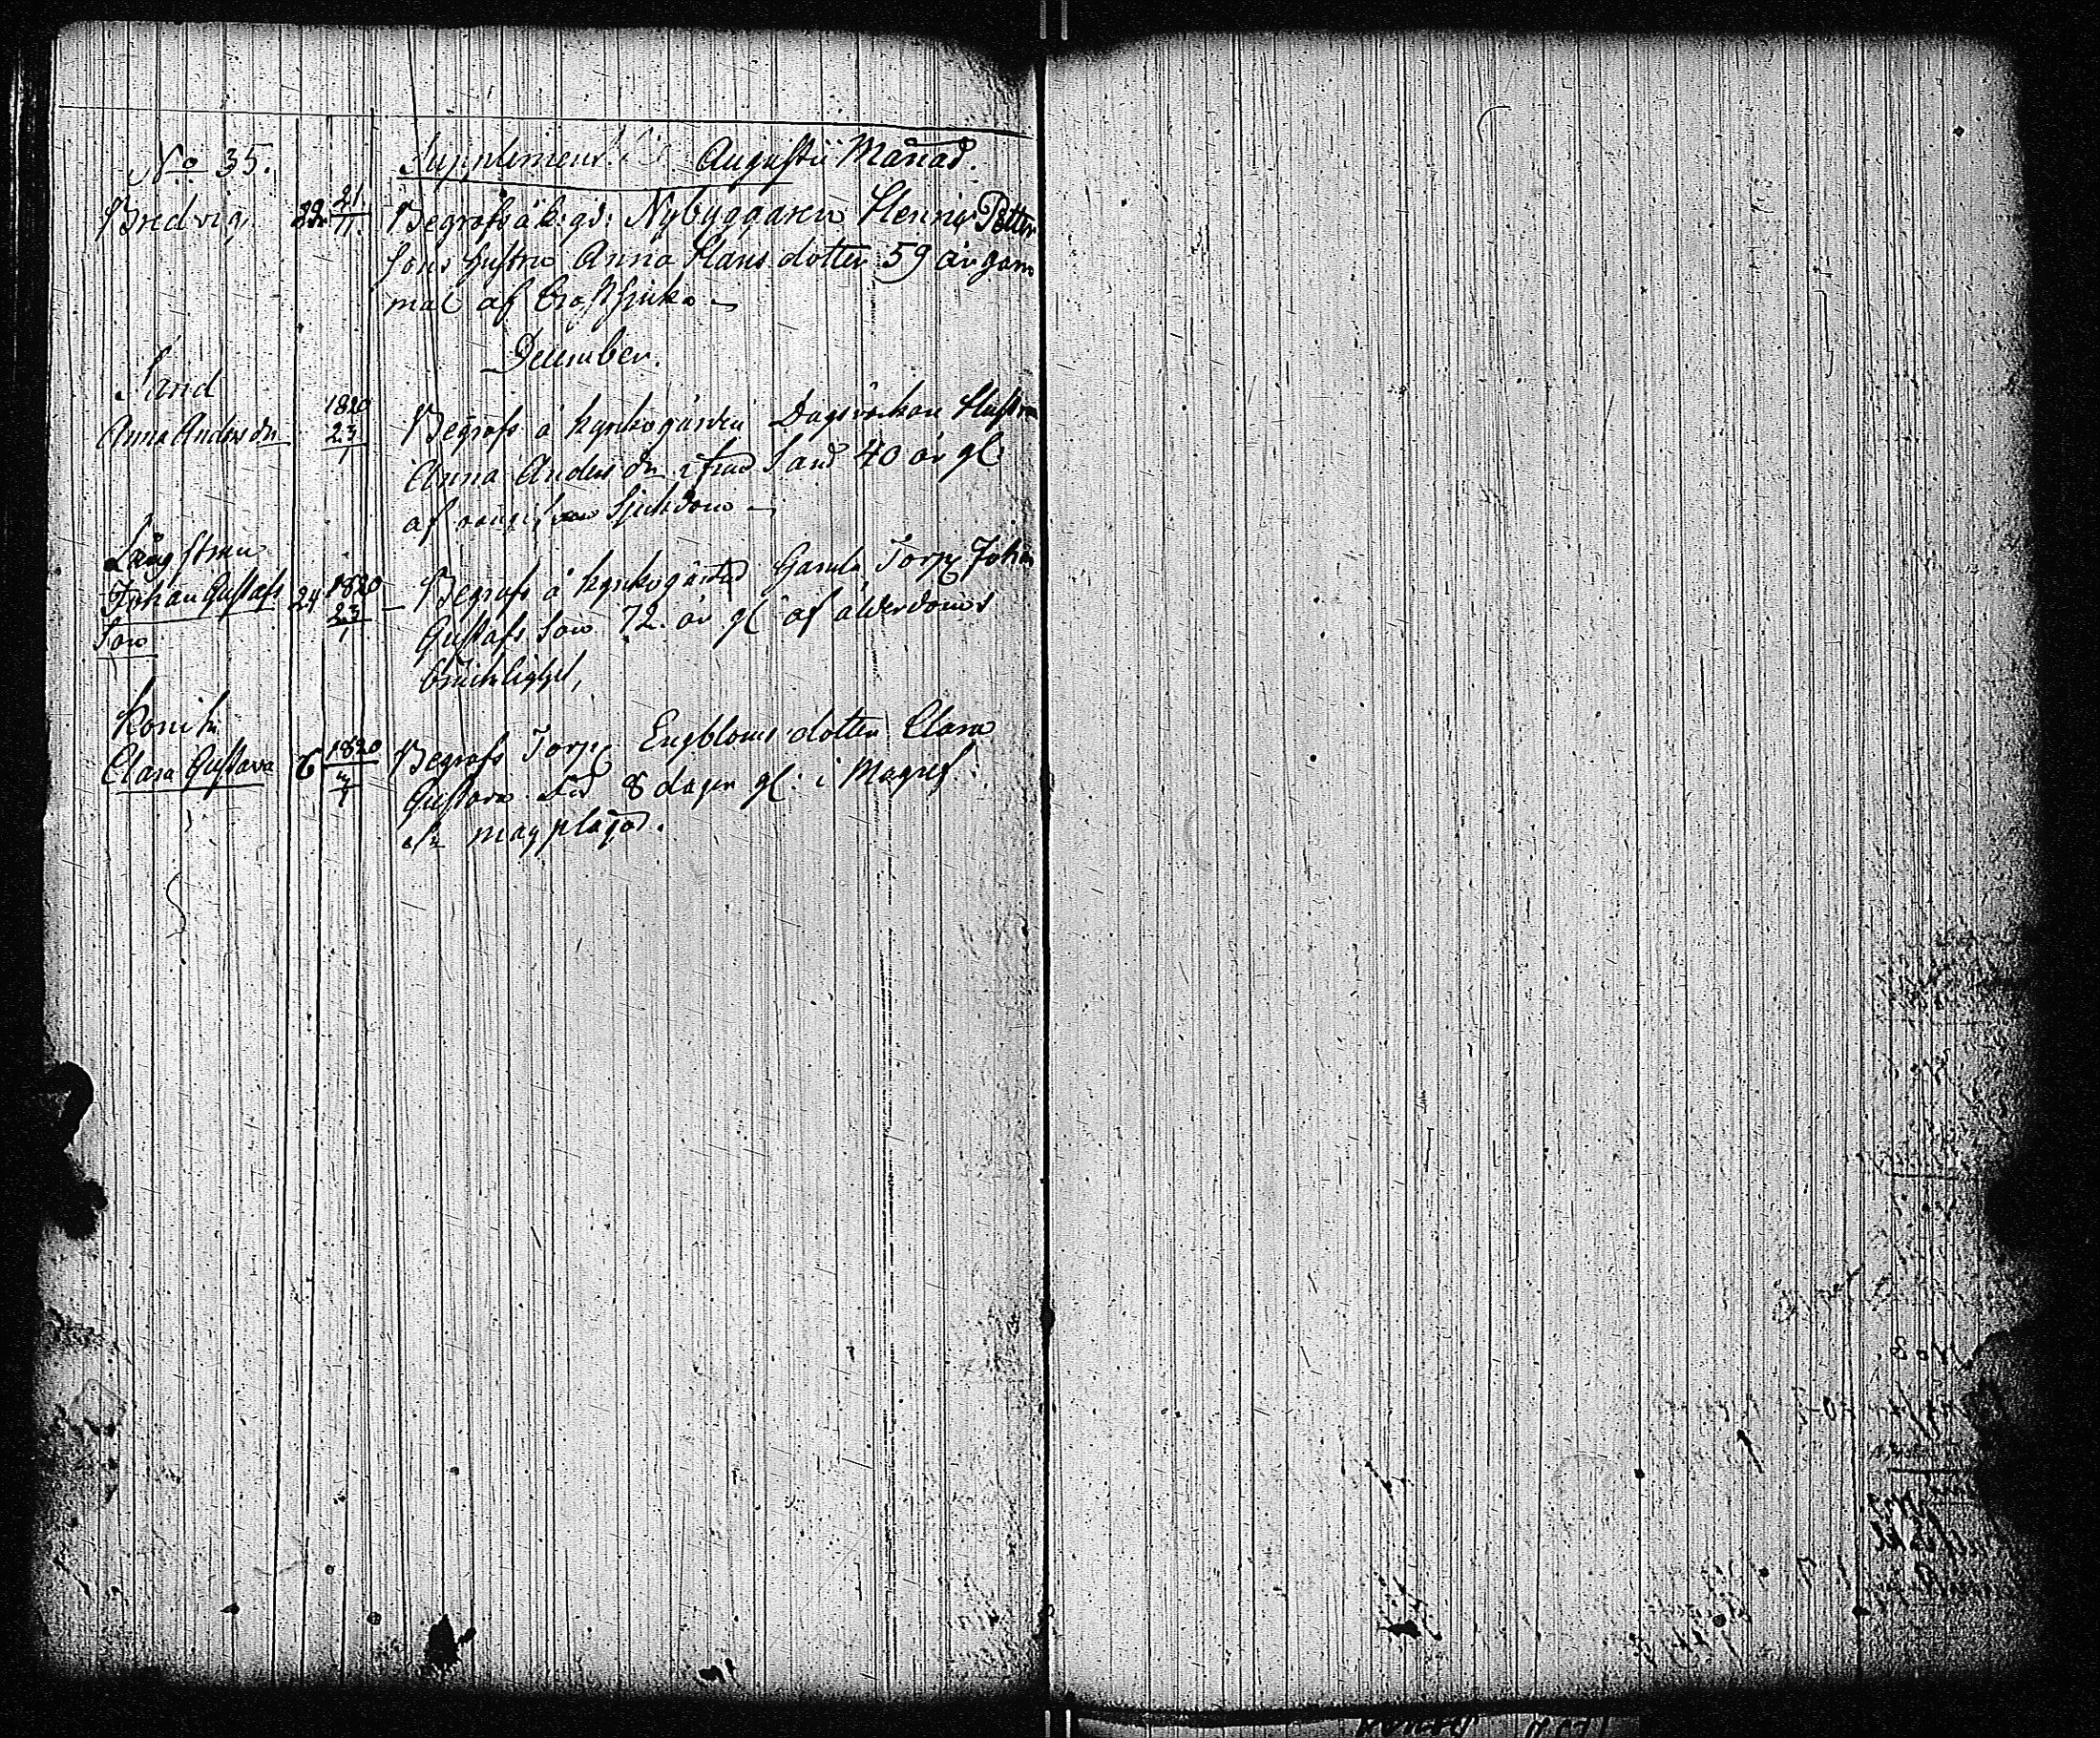 No 35.
Supplement Augusti Månad.
Bredvig 21/11 Begrofs å k: gd: Nybyggaren Henric Petter
sons hustru Anna Hans dotter 59 år gam
mal af bröstsjuka
December.
Sand
Anna Anders dr 1820 23/1 Begrofs å kyrkogården Dagsverkare Hustru
Anna Anders dr ifrån Sand 40 år gl
af sjukdom
Långström
Johan Gustafs 24 1820 23/1 Begrofs å kyrkogård Gamla Torp Johan
son
Gustafs son 72 år gl af ålderdoms
bräcklighet,
Clara Gustava 6 1820 Begrofs Torp Engbloms dotter Clara
Gustava 8 dagar gl: i Magref
magplågor.
No 8.